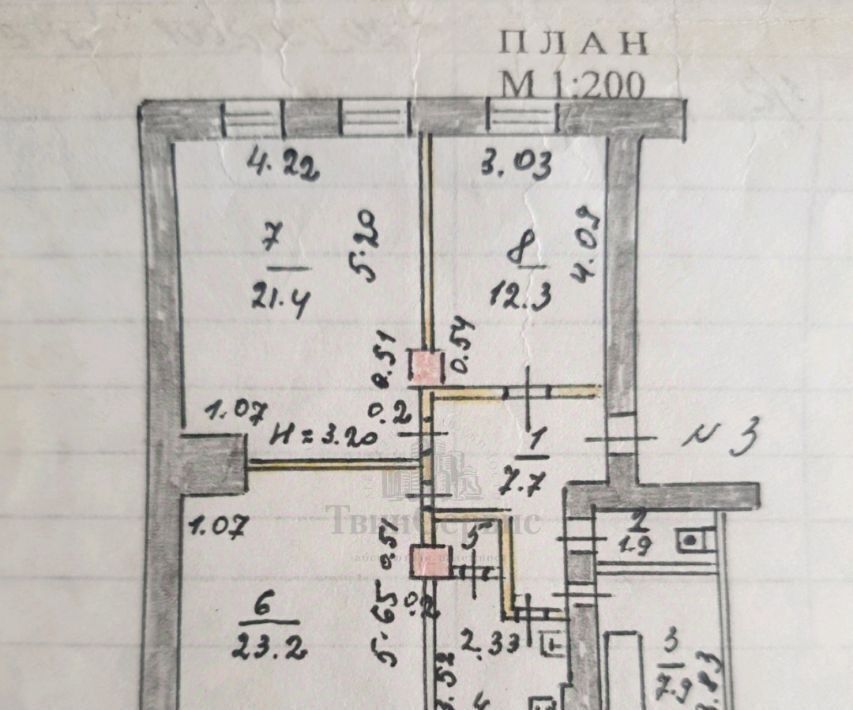 ПЛАН
М 1:200
4.22
3.03
7
21.4
5.20
8
12.3
4.09
0.51
0.54
1.07
0.2
Н = 3.20
1
7.7
N 3
ТвинСервис
1.07
0.51
5
2
1.9
6
23.2
5.65
0.2
2.33
3
7.9
3.52
4
3.83